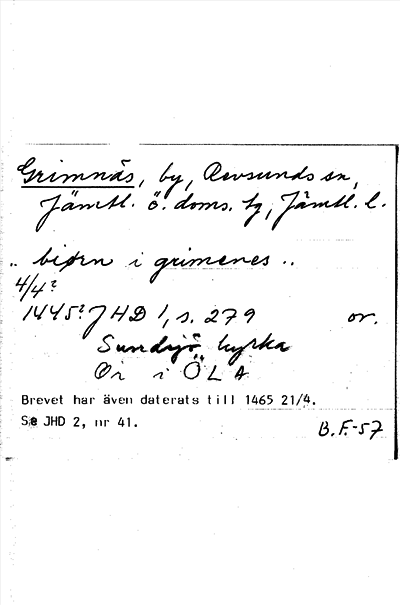 Grimnäs, by, Revsunds sn,
Jämtl. ö. doms. tg, Jämtl. l.
.. biørn i grimenes ..
4/4?
1445? JHD 1, s. 279 or.
Sundsjö kyrka
Or i ÖLA
Brevet har även daterats till 1465 21/4.
Se JHD 2, nr 41.
B.F.-57